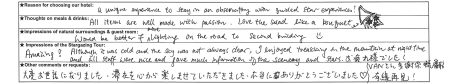 ★Reason for choosing our hotel:
a unique experience to stay in an observatory with guided star experience!
★Thoughts on meals & drinks:
All items are well made with passion. Love the salad like a bouquet
★Impressions of natural surroundings & guest room:
Would be better if lighting on the road to second building
★Impressions of the Stargazing Tour:
Amazing! Although it was cold and the sky was not always clear, I enjoyed in the mountain at night time
and all staff were nice and gave much information of the scenery and stars.
★Other comments or requests:
大変お世話になりました。滞在を楽しませていただきました。本当にありがとうございました♡